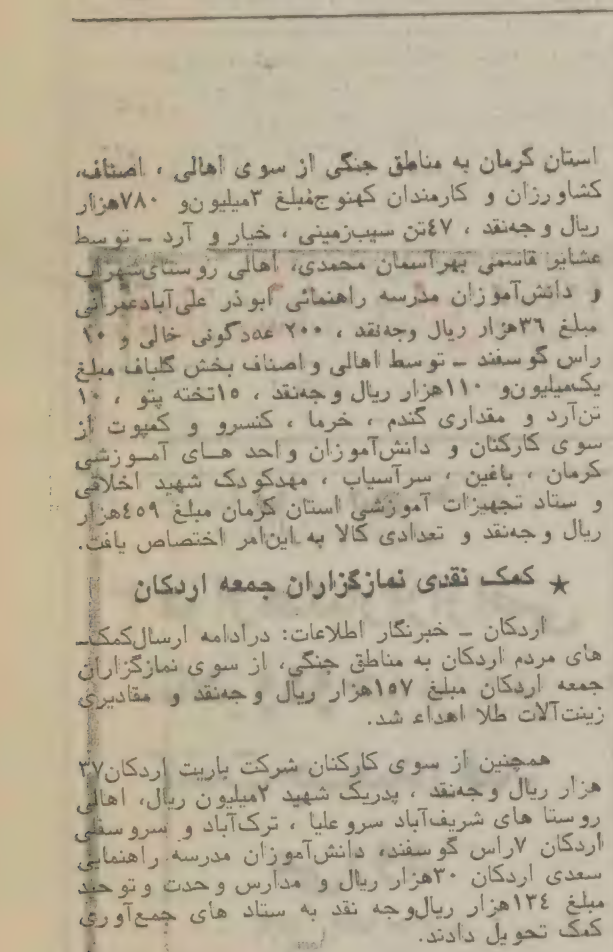 استان کرمان به مناطق جنگی از سوی اهالی ، اصناف،
کشاورزان و کارمندان کهنوج مبلغ ۳میلیون‌و ۷۸۰هزار
ریال وجه‌نقد ، ۴۷تن سیب‌زمینی ، خیار و آرد ــ توسط
عشایر قاسمی بهرآسمان محمدی، اهالی روستای‌شهراب
و دانش‌آموزان مدرسه راهنمائی ابوذر علی‌آبادعمرانی
مبلغ ۳۶هزار ریال وجه‌نقد ، ۲۰۰ عدد‌گونی خالی و ۲۰
راس گوسفند ــ توسط اهالی و اصناف بخش گلباف مبلغ
یک‌میلیون‌و ۱۱۰هزار ریال وجه‌نقد ، ۱۵تخته پتو ، ۱۰
تن‌آرد و مقداری گندم ، خرما ، کنسرو و کمپوت از
سوی کارکنان و دانش‌آموزان واحد هــای آمــوزشی
کرمان ، باغین ، سرآسیاب ، مهدکودک شهید اخلاقی
و ستاد تجهیزات آموزشی استان کرمان مبلغ ۴۵۹هزار
ریال وجه‌نقد و تعدادی کالا به این‌امر اختصاص یافت.
★ کمک نقدی نمازگزاران جمعه اردکان
اردکان ــ خبرنگار اطلاعات: درادامه ارسال‌کمک‌ــ
های مردم اردکان به مناطق جنگی، از سوی نمازگزاران
جمعه اردکان مبلغ ۱۵۷هزار ریال وجه‌نقد و مقادیری
زینت‌آلات طلا اهداء شد.
همچنین از سوی کارکنان شرکت باریت اردکان۳۷
هزار ریال وجه‌نقد ، پدریک شهید ۲میلیون ریال، اهالی
روستا های شریف‌آباد سروعلیا ، ترک‌آباد و سروسفلی
اردکان ۷راس گوسفند، دانش‌آموزان مدرسه راهنمایی
سعدی اردکان ۳۰هزار ریال و مدارس وحدت وتوحید
مبلغ ۱۳۴هزار ریال‌وجه نقد به ستاد های جمع‌آوری
کمک تحویل دادند.